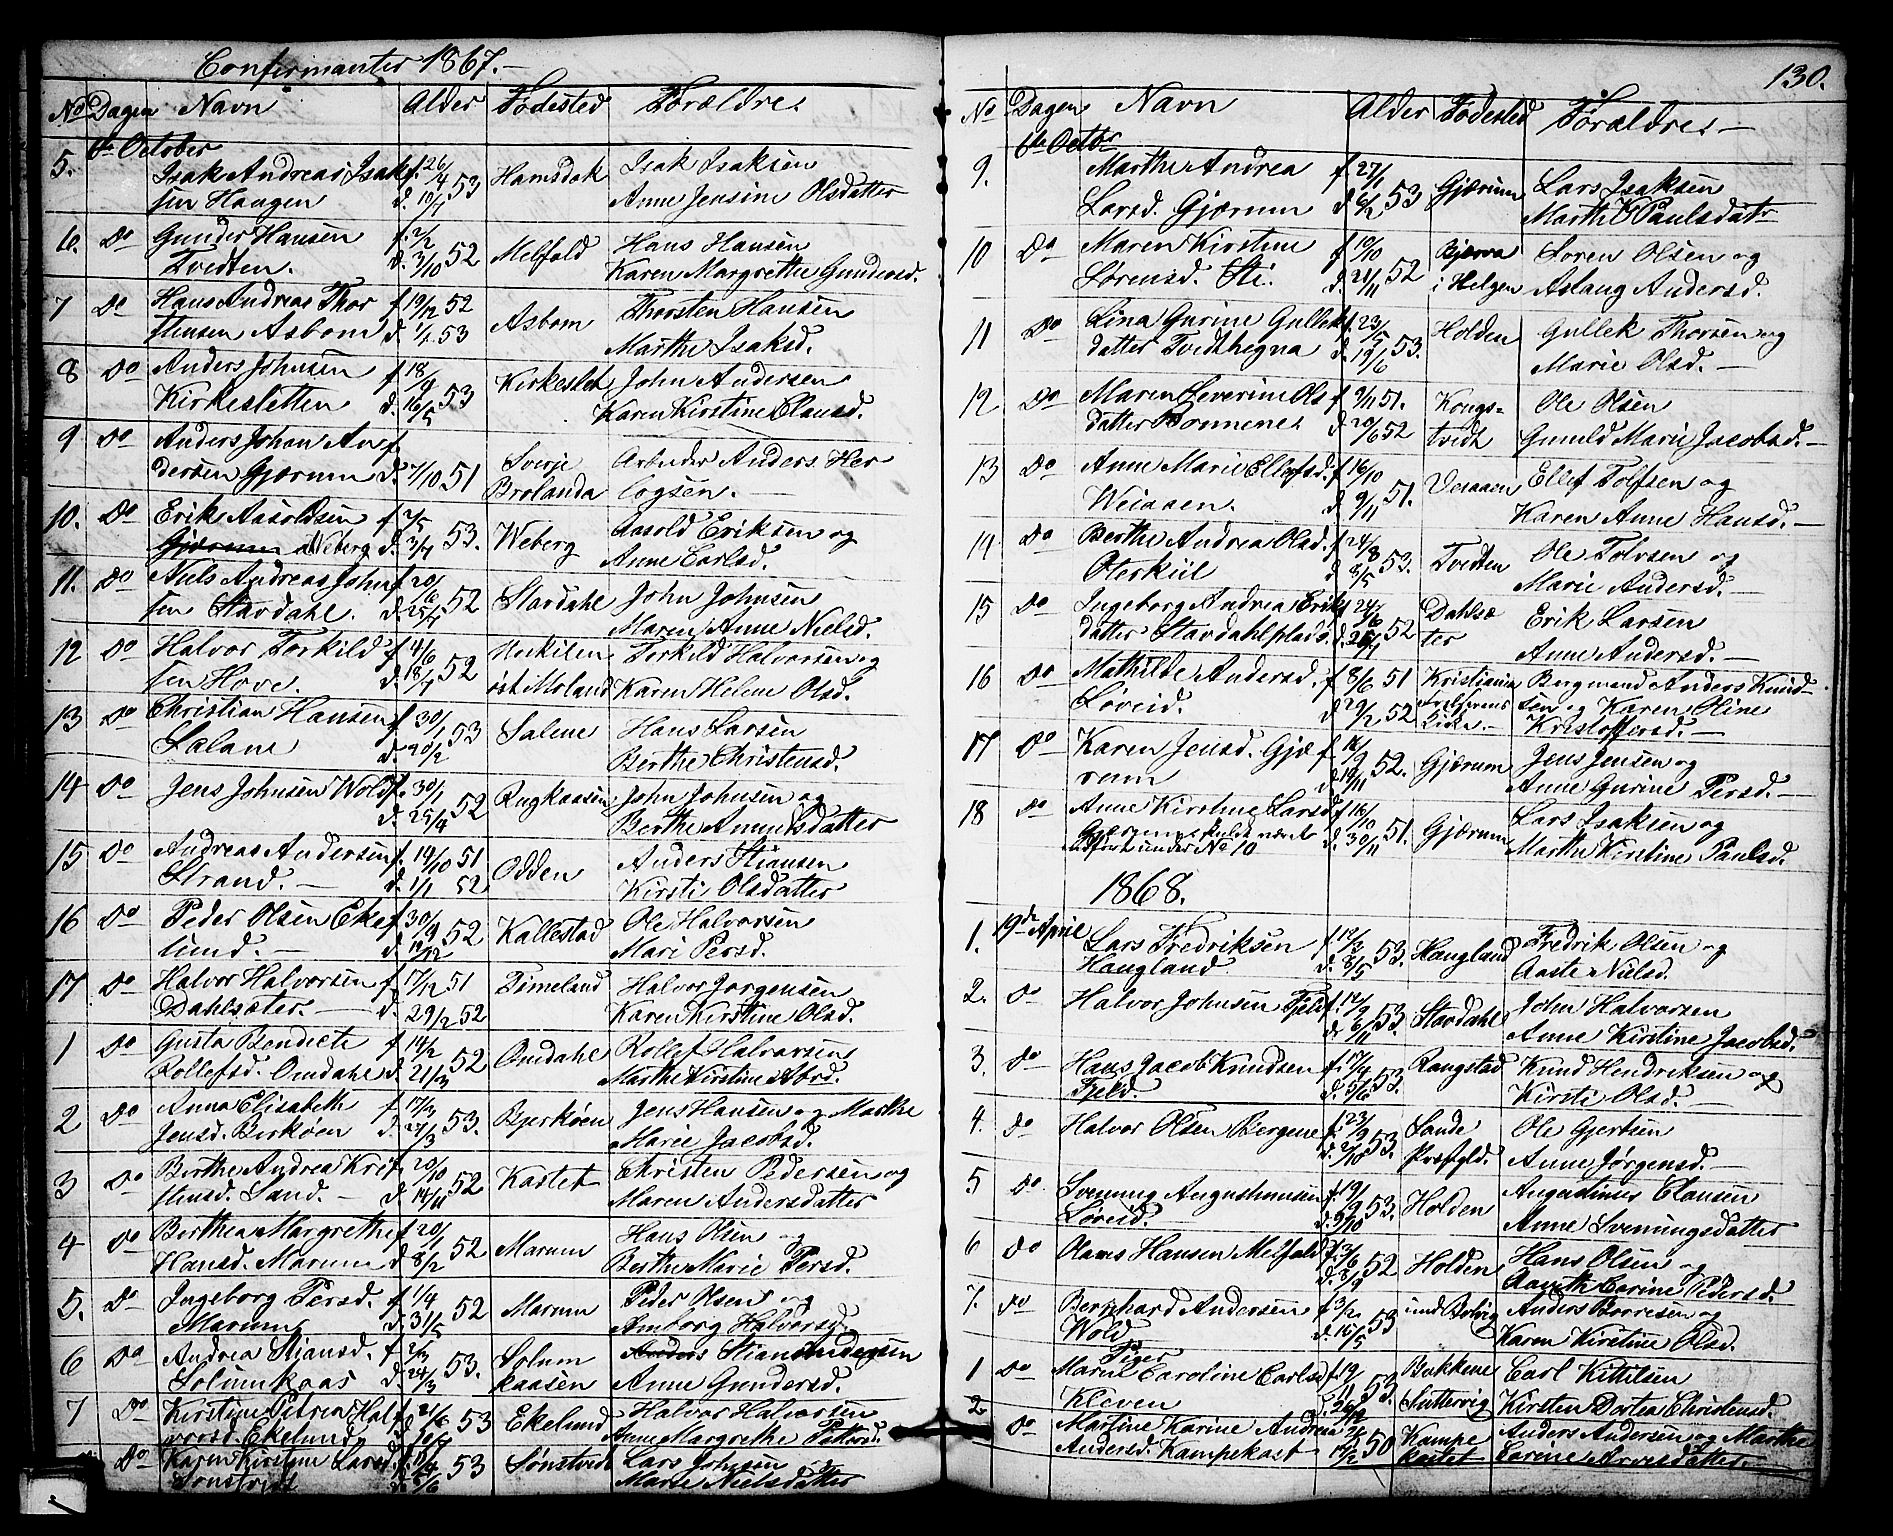 Confirmanter 1867.-
No Dagen Navn Alder Fødested Forældre
6te October
5. Isak Andreas Isak f. 26/4 53 Hamsdok Isak Isaksen
sen Haagen d. 10/7 Anne Jensine Olsdatter
6. Do Gunder Hansen f. 2/2 52 Melfald Hans Hansen
Tvedten. d. 3/10 Karen Margrethe Gundersd.
7 Do Hans Andreas Thor f 19/12 52 Asbom Thorsten Hansen
stensen Asbom d. 1/4 53 Marthe Isaksd.
8 Do Anders Johnsen f 18/9 53 Kirkeslet John Andersen
Kirkesletten d. 16/5 Karen Kirstine Clausd.
9 Do Anders Johan An f Sverje Arbeider Anders Her
dersen Gjærum d. 7/10 51 Brolanda logsen.-
10. Do Erik Aasoldsen f 2/5 53. Weberg Aasold Eriksen og
Gjærum Weberg d. 3/7 Anne Carlsd.
11. Do Niels Andreas John f. 20/6 52 Stavdahl John Johnsen
sen Stavdahl. d. 25/7 Maren Anne Nielsd.
12 Do Halvor Torkild f. 4/6 52 Torkild Halvorsen og
sen Hove. d. 18/7 øst Moland Karen Helene Olsd.
13 Do Christian Hansen f 30/1 53 Salene Hans Larsen
Salane d. 20/2 Berthe Christensd.
14 Do Jens Johnsen Wold f. 30/1 52 Rugkaasen John Johnsen og
d. 25/4 Berthe
15 Do Andreas Andersen f. 14/10 51 Odden Anders Stiansen
Strand.- d. 1/1 52 Kirsti Olsdatter
16 Do Peder Olsen Eke f 30/9 52 Kallestad Ole Halvorsen
lund.- d. 19/12 Mari Persd.
17 Do Halvor Halvorsen f 17/12 51 Timeland Halvor Jørgensen
Dahlsæter.- d. 29/2 52 Karen Kirstine Olsd.
1 Do Gusta Bendicte f 14/2 52 Omdahl Rollef Halvorsen
Rollefsd. Omdahl d. 21/3 Marthe Kirstine
2 Do Anna Elisabeth f 17/3 53. Bjerkøen Jens Hansen og Marthe
Jensd. Birkøen d. 27/3 Marie Jacobsd.
3 Do Berthe Andrea Kris f. 20/10 52 Kastet Christen Pedersen og
tensd. Sand.- d. 14/11 Maren Andersdatter
4 Do Berthea Margrethe f 20/1 52 Marum Hans Olsen og
Hansd. Marum d 8/2 Berthe Marie Persd.
5. Do Ingeborg Persd. f. 1/4 52 Marum Peder Olsen og
Marum d. 31/5 Amborg Halvorsd.
6 Do Andrea Stiansd. f 2/3 53. Solum Anders Stian Andersen
Solumkaas d. 24/3 kaasen Anne Gundersd.
7 Do Kirstine Petrea Hal f. 21/6 53 Ekelund Halvor Halvorsen
vorsd. Ekelund Anne Margrethe
Do Karen Kirstine Larsd. 53 Sønstvedt Lars Johnsen
Sønstvedt Maren Nielsdatter
130.
No Dagen Navn Alder Fødested Forældre-
6te Octbr
9. Marthe Andrea f 27/1 53 Gjærum Lars Isaksen
Larsd. Gjærum d 6/2 Marthe K Paulsdatr
10 Do Maren Kirstine f 10/10 52 Bjærva Søren Olsen og
Sørensd. Sti. d. 21/11 i Helgen Aslaug Andersd.
11 Do Lina Gurine Gulleks f. 23/5 53. Holden Gullek Thorsen og
datter Tvedthegna d. 19/6 Marie Olsd.-
12 Do Maren Severine Ols f 9/11 51. Kongs= Ole Olsen
datter d. 20/6 52 tvedt Gunuld Marie Jacobsd.-
13 Do Anne Marie Ellefsd. f 16/10 51. Veiaaen Ellef Tolfsen og
Weiaaen. d 9/11 Karen Anne Hansd.-
14 Do Berthe Andrea Olsd. f. 24/8 53. Tvedten Ole Tolvsen og
Oterkiil d 8/5 Marie Andersd.-
15 Do Ingeborg Andrea Eriks f 24/6 52 Dahlsæ Erik Larsen
datter Stavdahlplads. d. 25/7 ter Anne Andersd.-
16 Do Mathilde Andersd. f 8/6 51 Kristiania Bergmand Anders Knud-
Løveid. d 29/2 52 sen og Karen Stine
Kristoffersd.-
17 Do Karen Jensd. Gjæ f 16/9 52. Gjærum Jens Jensen og
rum d 19/11 Anne Gurine Persd.-
18 Do Anne Kirstine Larsd f 16/10 51. Gjærum Lars Isaksen og
under No 10 d. 30/11 Marthe Kirstine Paulsd.
1868.
1. 19de April Lars Fredriksen f. 19/3 53. Haugland Fredrik Olsen og
Haugland d. 8/5 Aaste Nielsd.
2. Do Halvor Johnsen Fjeld f. 53. Stavdahl John Halvorsen
d. 6/11 Anne Kirstine Jacobsd.
3. Do Hans Jacob Knudsen f. 17/4 53. Rangstad Knud Hendriksen og
Fjeld. d. 5/6 Kirsti Olsd.-
4. Do Halvor Olsen Bergene f. 23/9 53. Sande Ole Gjertsen
d. 2/10 Præstgld. Anne Jørgensd.-
5 Do Svenung Augustinusen f. 19/1 53. Holden Augustinus Clausen
Løveid. Anne Svenungsdatter
6 Do Olaves Hansen Melfald f. 3/6 52 Holden Hans Olsen og
Carine Pedersd.
7. Do Bernhard Andersen f 3/2 53 Anders Borresen og
Wold d. 15/5 Karen Kirstine Olsd.
Piger
1 Do Maren Caroline Carlsd 53. Bakkene Carl Kittelsen
Kleven Kirsten Dortea Christensd.
2 Do Martine Karine Andrea 50 Kampe Anders Andersen og Marthe
Andersd. Kampekast kastet Carine